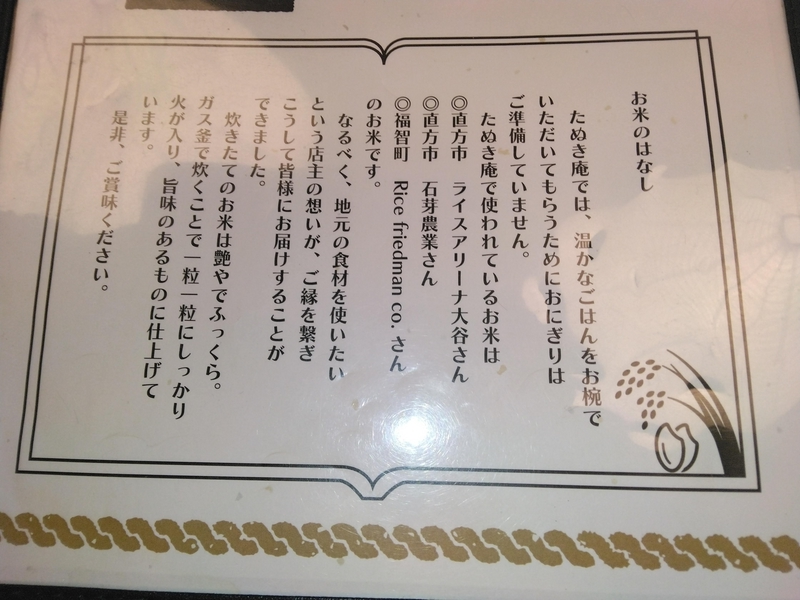 お米のはなし
ためき庵では、温かなごはんをお椀で
いただいてもらうためにおにぎりは
ご準備していません。
ためき庵で使われているお米は
◎直方市　ライスアリーナ大谷さん
◎直方市　石芽農業さん
◎福智町　Rice friedman co. さん
のお米です。
なるべく、地元の食材を使いたい
という店主の想いが、ご縁を繋ぎ
こうして皆様にお届けすることが
できました。
炊きたてのお米は艶やでふっくら。
ガス釜で炊くことで一粒一粒にしっかり
火が入り、旨味のあるものに仕上げて
います。
是非、ご賞味ください。